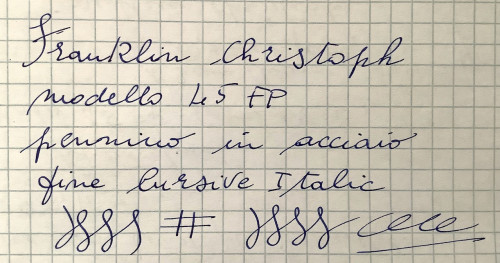 Franklin Christoph
modello 45 FP
pennino in acciaio
fine Cursive Italic
#